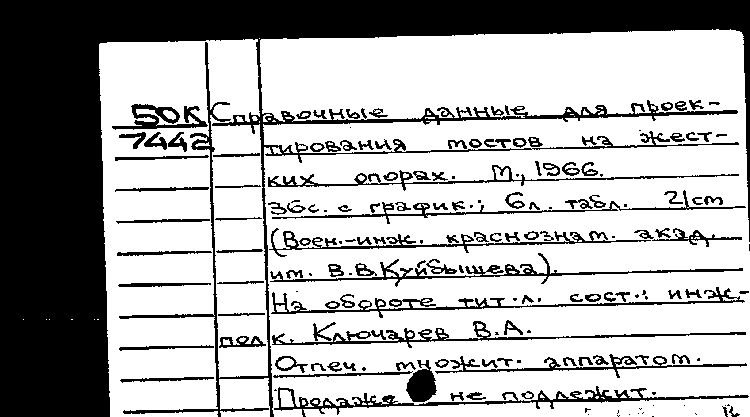 50К Справочные данные для проек-
7442 тирования мостов на жест-
ких опорах. М., 1966.
36с. с график.; 6л. табл. 21cm
(Воен.-инж. краснознам. акад.
им. В.В.Куйбышева).
На обороте тит.л. сост.: инж.-
полк. Ключарев В.А.
Отпеч. множит. аппаратом.
Продаже не подлежит.